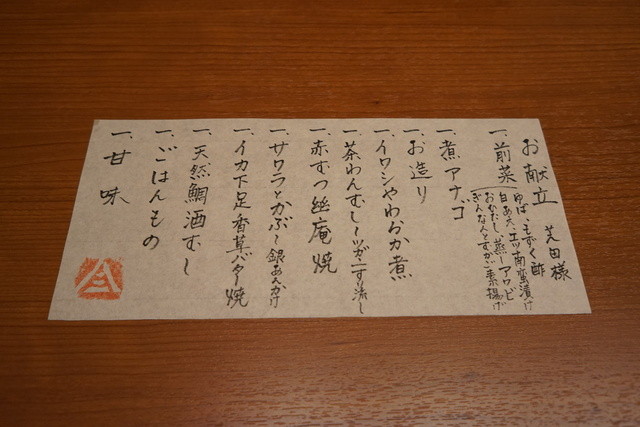 お献立 芝田様
一、前菜
ゆば、もずく酢
白あえ、エツ南蛮漬け
おひたし、蒸しアワビ
ぎんなんとすかご素揚げ
一、煮アナゴ
一、お造り
一、イワシやわらか煮
一、茶わんむし〜ツガニすり流し
一、赤むつ幽庵焼
一、サワラとかぶら銀あんかけ
一、イカ下足香草バター焼
一、天然鯛酒むし
一、ごはんもの
一、甘味